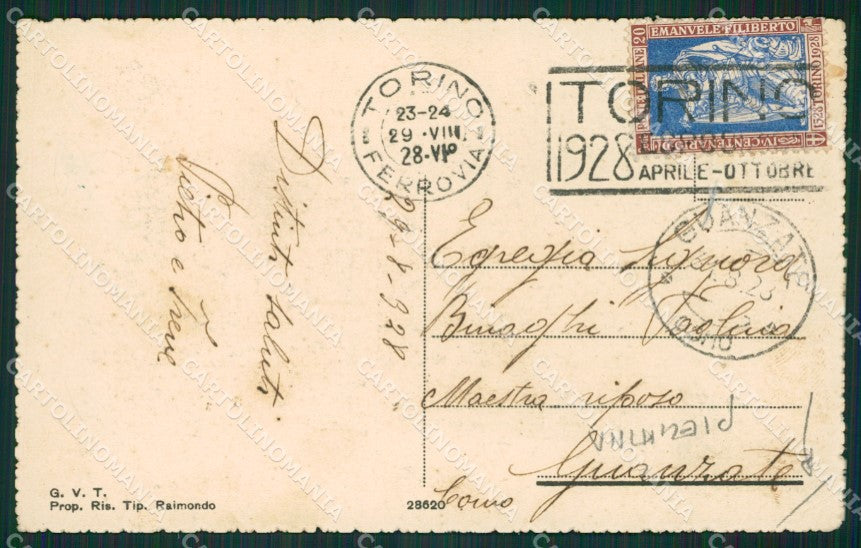 POSTE ITALIANE 20
EMANUELE FILIBERTO
1528 TORINO 1928
IV CENTENARIO DI
TORINO
23-24
29 · VIII
28 · VIº
FERROVIA
TORINO
1928
APRILE - OTTOBRE
GUANZATE
COMO
Distinti saluti
Pietro e Irene
29-8-928
Egregia Signora
Binaghi Paolina
Maestra riposo
Guanzate
Como
G. V. T.
Prop. Ris. Tip. Raimondo
28620
CARTOLINOMANIA